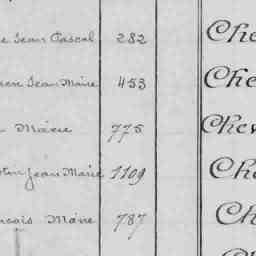 e Jean Pascal 282 Che
en Jean Marie 453 Che
Marie 775 Chev
tin Jean Marie 1109 Che
ncois Marie 787 Ch